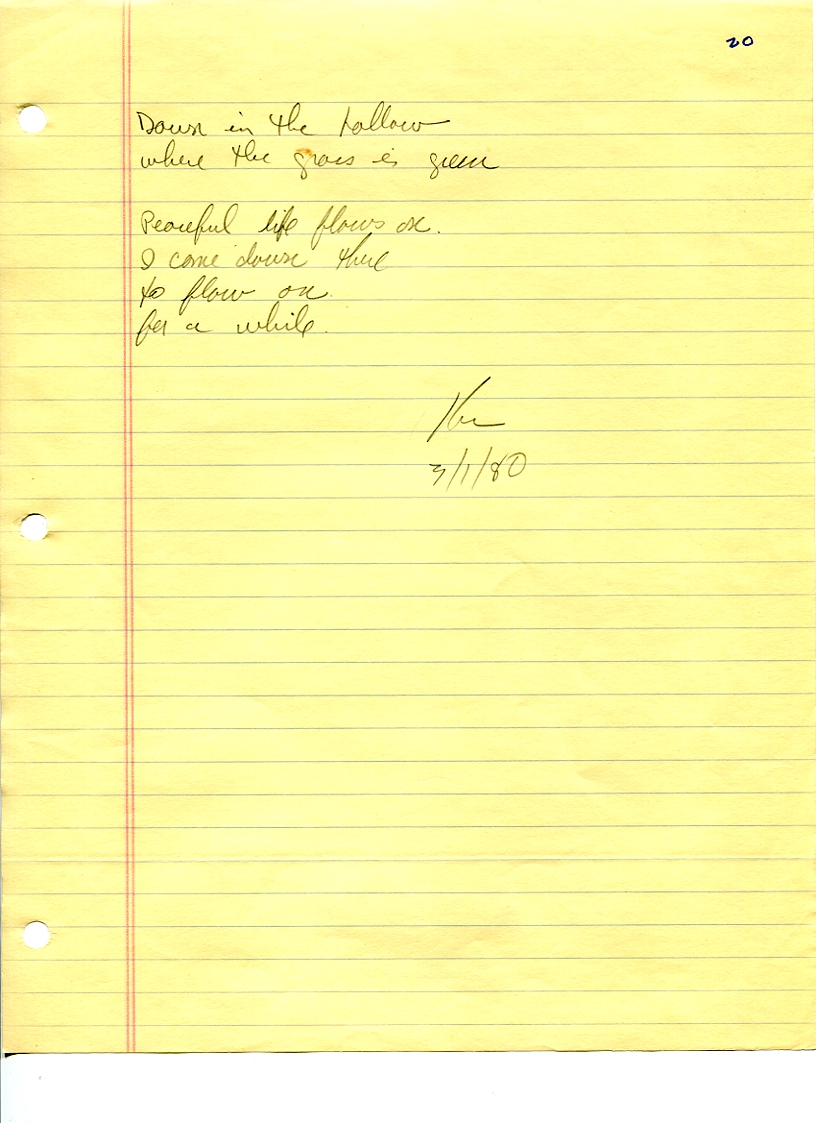 20
Down in the hollow
where the grass is green
Peaceful life flows on.
I come down there
to flow on
for a while.
3/1/80